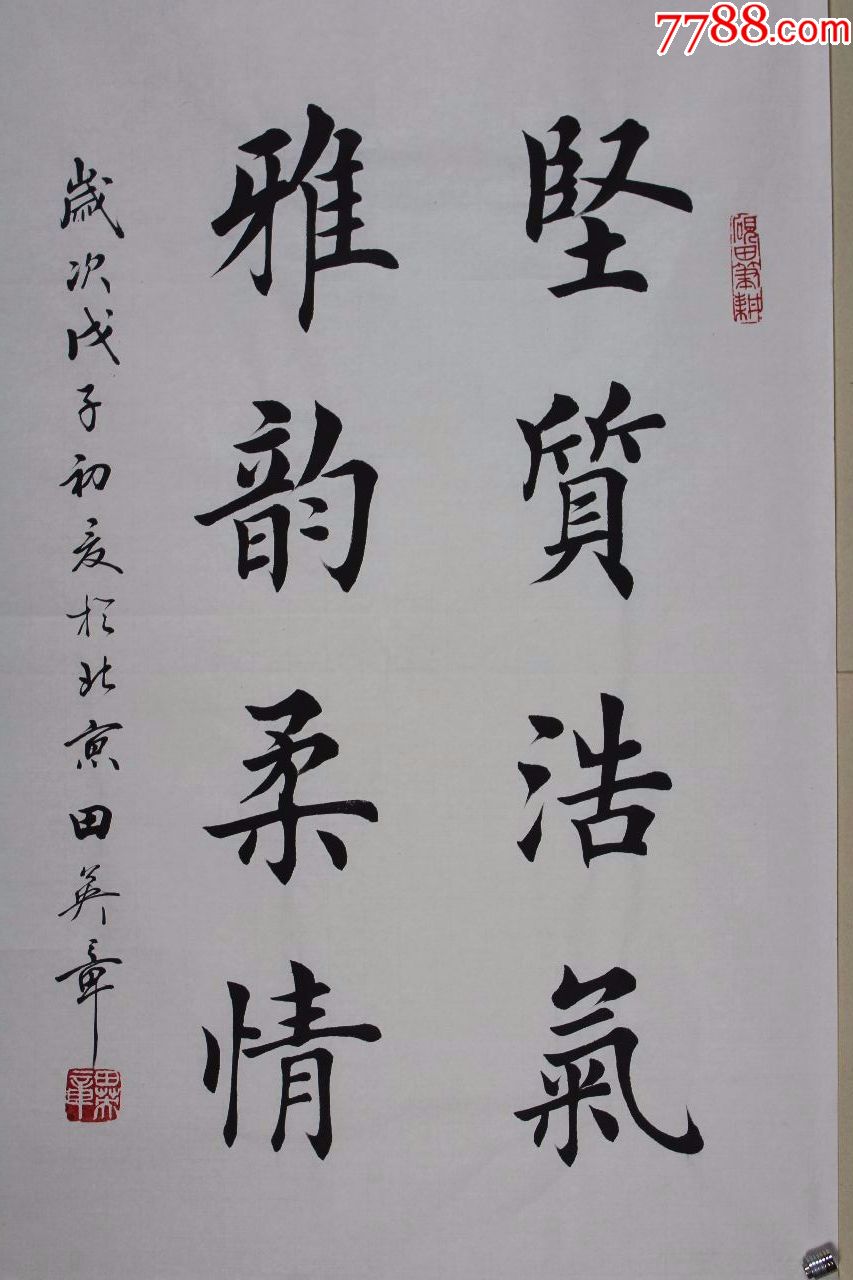 7788.com
堅質浩氣
雅韵柔情
歲次戊子初夏於北京田英章
硯田筆耕
田英章